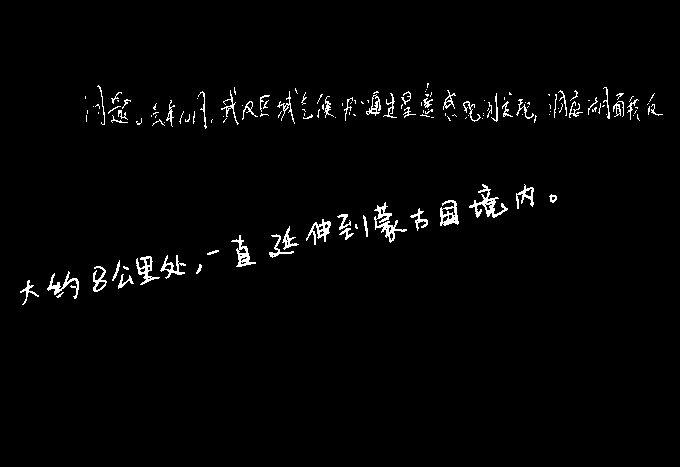 问题。去年10月,武汉区域气候 通过星遥感 测发现,洞庭湖面积
大约8公里处,一直延伸到蒙古国境内。